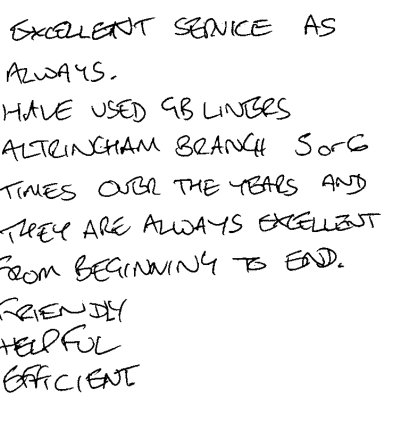 EXCELLENT SERVICE AS
ALWAYS.
HAVE USED GB LINERS
ALTRINCHAM BRANCH 5 or 6
TIMES OVER THE YEARS AND
THEY ARE ALWAYS EXCELLENT
FROM BEGINNING TO END.
FRIENDLY
HELPFUL
EFFICIENT